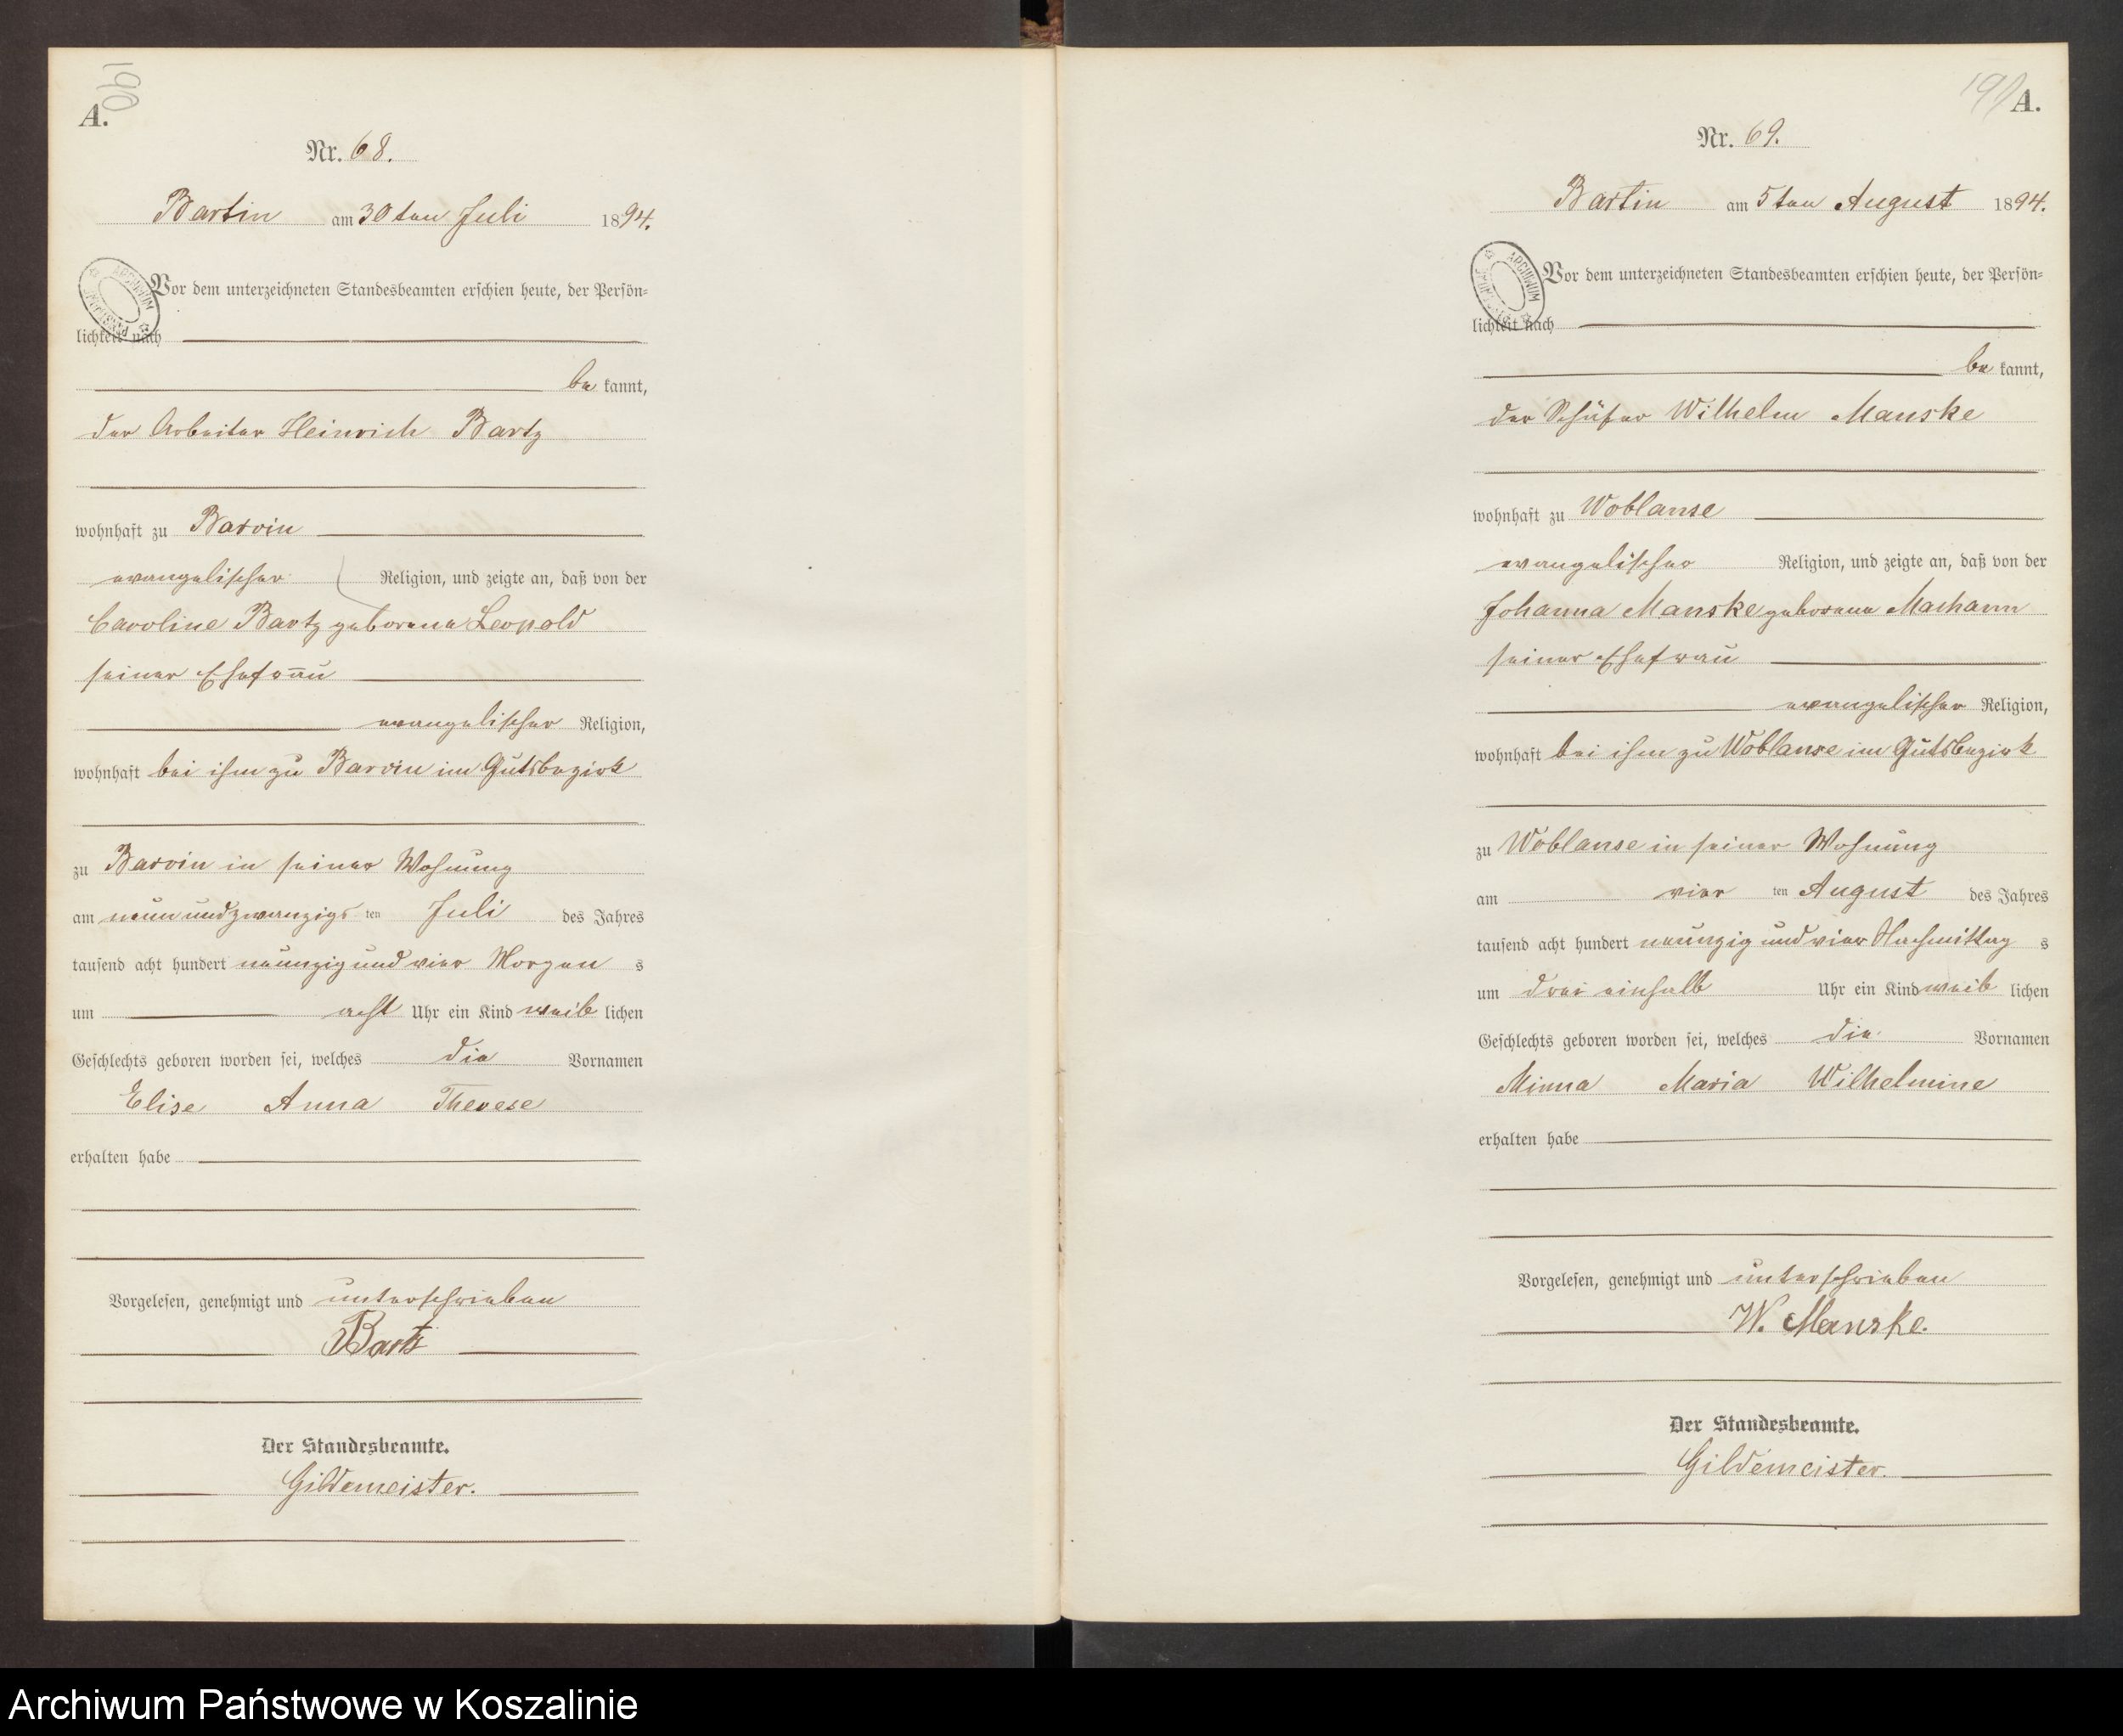 190
A.
Nr. 68.
Bartin am 30ten Juli 1894.
Vor dem unterzeichneten Standesbeamten erschien heute, der Persön-
lichkeit nach
be kannt,
der Arbeiter Heinrich Bartz
wohnhaft zu Barvin
evangelischer Religion, und zeigte an, daß von der
Caroline Bartz geborene Leopold
seiner Ehefrau
evangelischer Religion,
wohnhaft bei ihm zu Barvin im Gutsbezirk
zu Barvin in seiner Wohnung
am neun und zwanzigs ten Juli des Jahres
tausend acht hundert neunzig und vier Morgen s
um acht Uhr ein Kind weib lichen
Geschlechts geboren worden sei, welches die Vornamen
Elise Anna Therese
erhalten habe
Vorgelesen, genehmigt und unterschrieben
Bartz
Der Standesbeamte.
Gildemeister.
191
A.
Nr. 69.
Bartin am 5ten August 1894.
Vor dem unterzeichneten Standesbeamten erschien heute, der Persön-
lichkeit nach
be kannt,
der Schäfer Wilhelm Manske
wohnhaft zu Woblanse
evangelischer Religion, und zeigte an, daß von der
Johanna Manske geborene Machann
seiner Ehefrau
evangelischer Religion,
wohnhaft bei ihm zu Woblanse im Gutsbezirk
zu Woblanse in seiner Wohnung
am vier ten August des Jahres
tausend acht hundert neunzig und vier Nachmittag s
um drei einhalb Uhr ein Kind weib lichen
Geschlechts geboren worden sei, welches die Vornamen
Minna Maria Wilhelmine
erhalten habe
Vorgelesen, genehmigt und unterschrieben
W. Manske.
Der Standesbeamte.
Gildemeister.
Archiwum Państwowe w Koszalinie